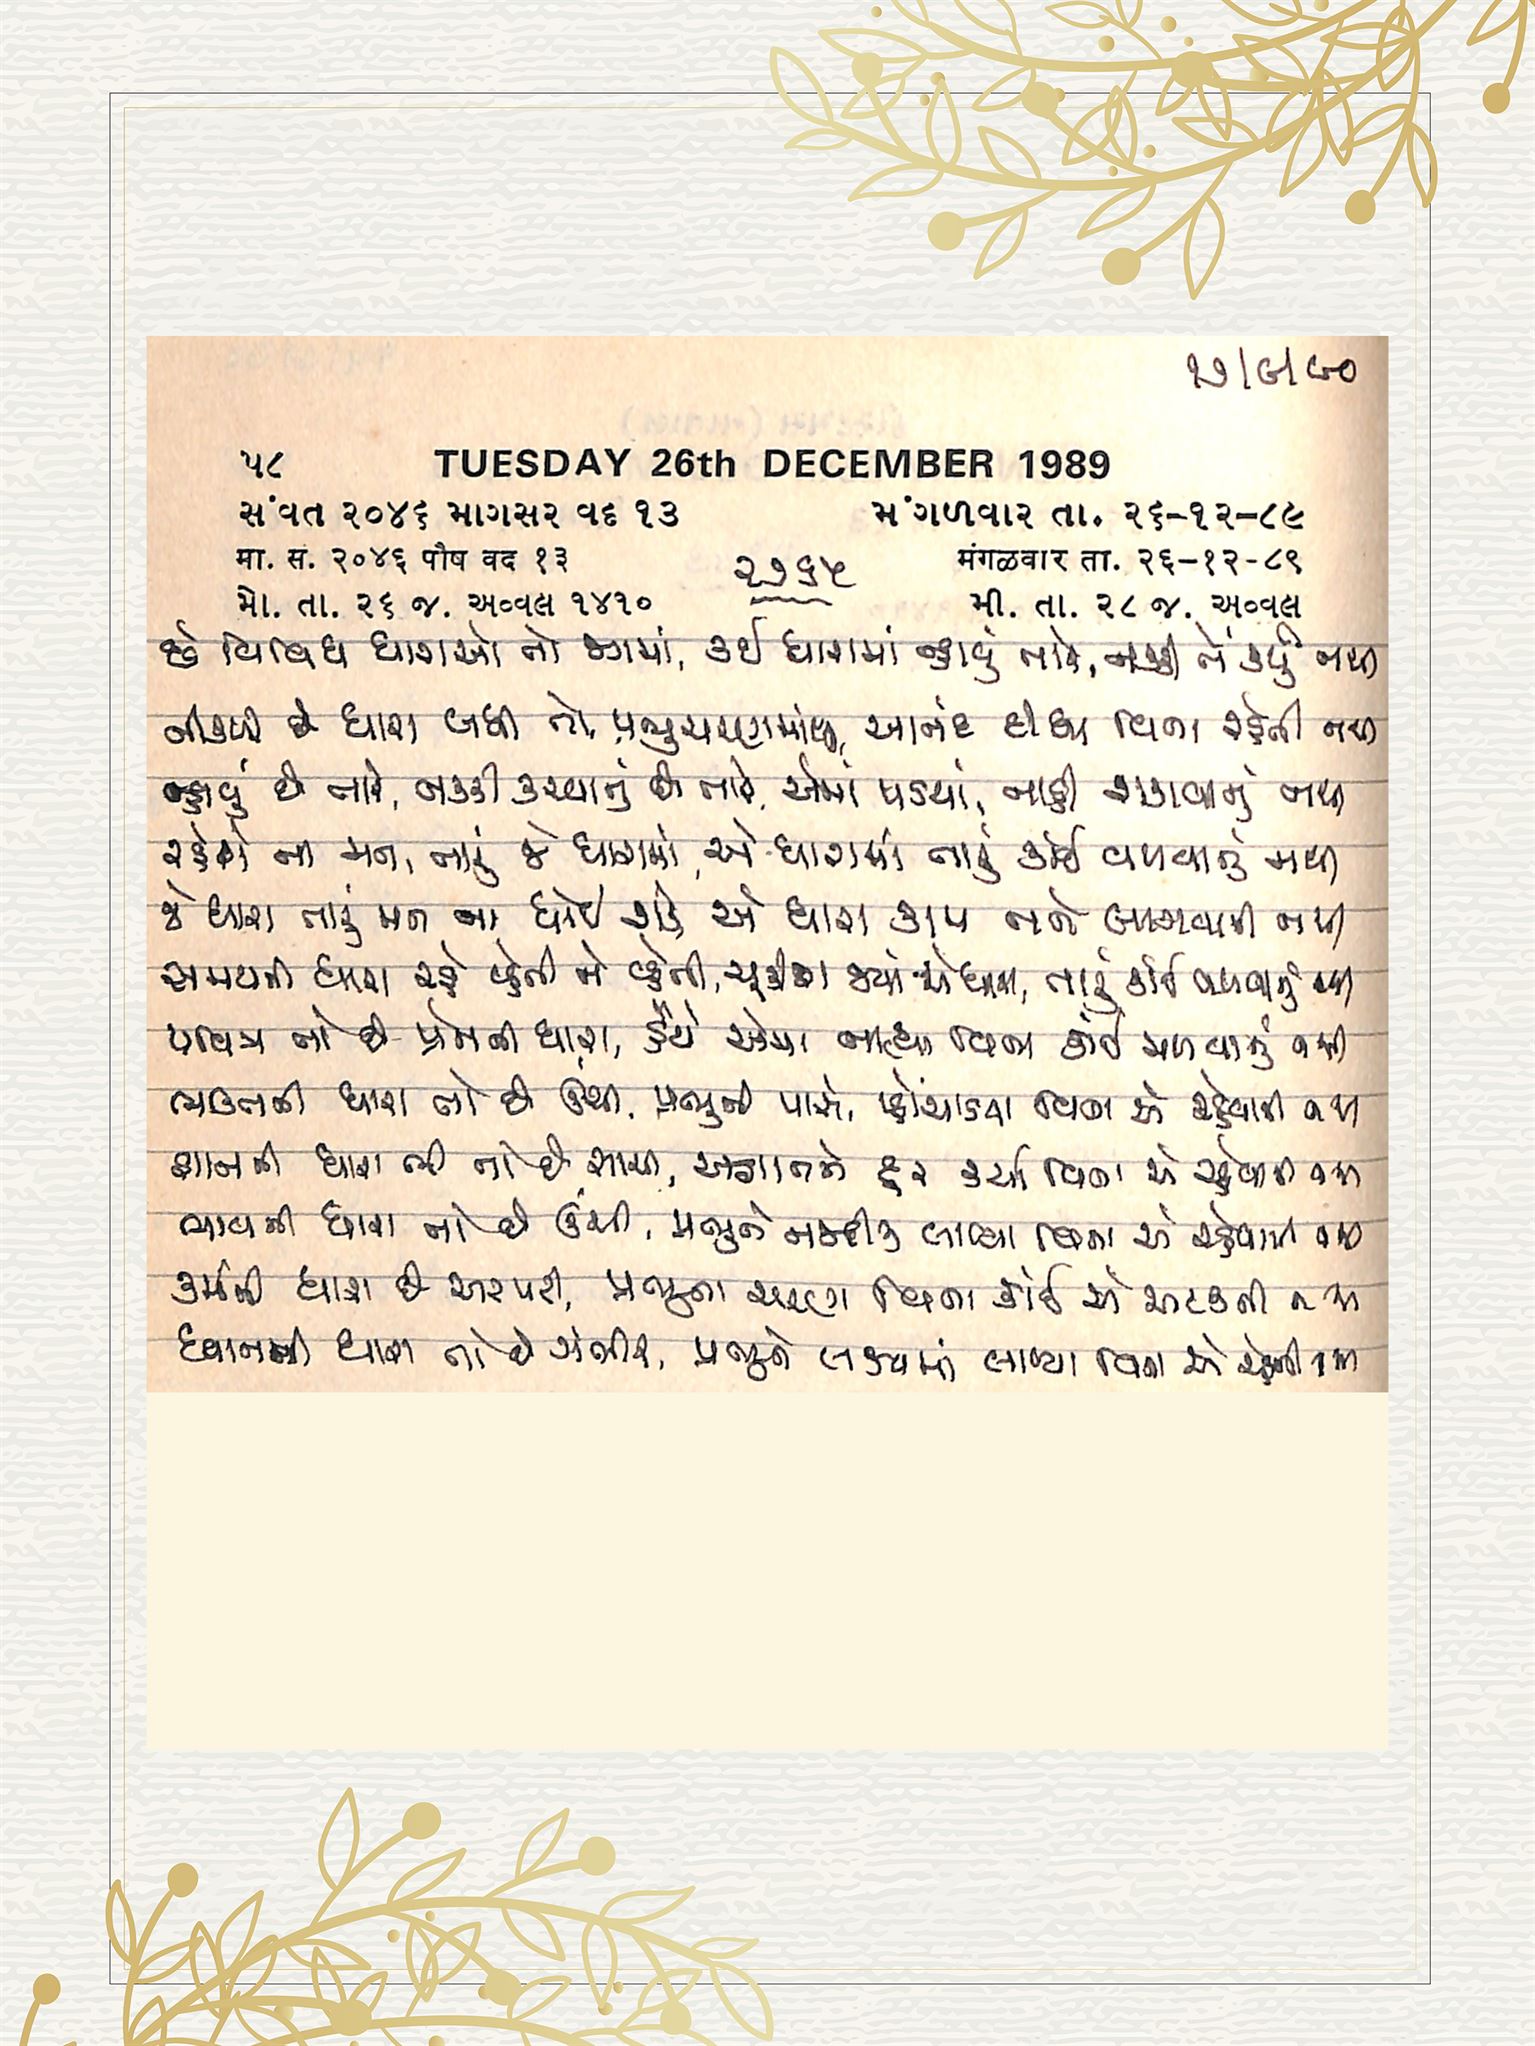 ૧૭/૯/૯૦
૫૮ TUESDAY 26th DECEMBER 1989
સંવત ૨૦૪૬ માગસર વદ ૧૩ મંગળવાર તા. ૨૬-૧૨-૮૯
मा. सं. २०४६ पौष वद १३ मंगळवार ता. २६-१२-८९
મો. તા. ૨૬ જ. અવ્વલ ૧૪૧૦ મી. તા. ૨૮ જ. અવ્વલ
૨૭૬૫
છે વિવિધ ધારાઓ તો જગમાં, કઈ ધારામાં ન્હાવું તારે, નક્કી તેં કર્યું નથી
નીકળી છે ધારા બધી તો, પ્રભુચરણમાંથી, આનંદ દીધા વિના રહેતી નથી
ન્હાવું છે તારે, નક્કી કરવાનું છે તારે, એમાં પડયાં, નાહી શકાવાનું નથી
રહેશે ના મન, તારું જે ધારામાં, એ ધારામાં તારું કાંઈ વળવાનું નથી
જે ધારા તારું મન ના ધોઈ શકે એ ધારા કામ તને લાગવાની નથી
સમયની ધારા રહે વ્હેતી ને વ્હેતી, ચૂક્યા જ્યાં એ ધારા, તારું કાંઈ વળવાનું નથી
પવિત્ર તો છે પ્રેમની ધારા, હૈયે એમાં નાહ્યા વિના કાંઈ મળવાનું નથી
ભક્તિની ધારા તો છે ઊંચી, પ્રભુની પાસે, પહોંચાડયા વિના એ રહેવાની નથી
જ્ઞાનની ધારા ભી તો છે સાચી, અજ્ઞાનને દૂર કર્યા વિના એ રહેવાની નથી
ભાવની ધારા તો છે ઊંચી, પ્રભુને નજદીક લાવ્યા વિના એ રહેવાની નથી
કર્મની ધારા છે અટપટી, પ્રભુના ચરણ વિના કાંઈ એ અટકતી નથી
ધ્યાનની ધારા તો છે ગંભીર, પ્રભુને લક્ષ્યમાં લાવ્યા વિના એ રહેતી નથી